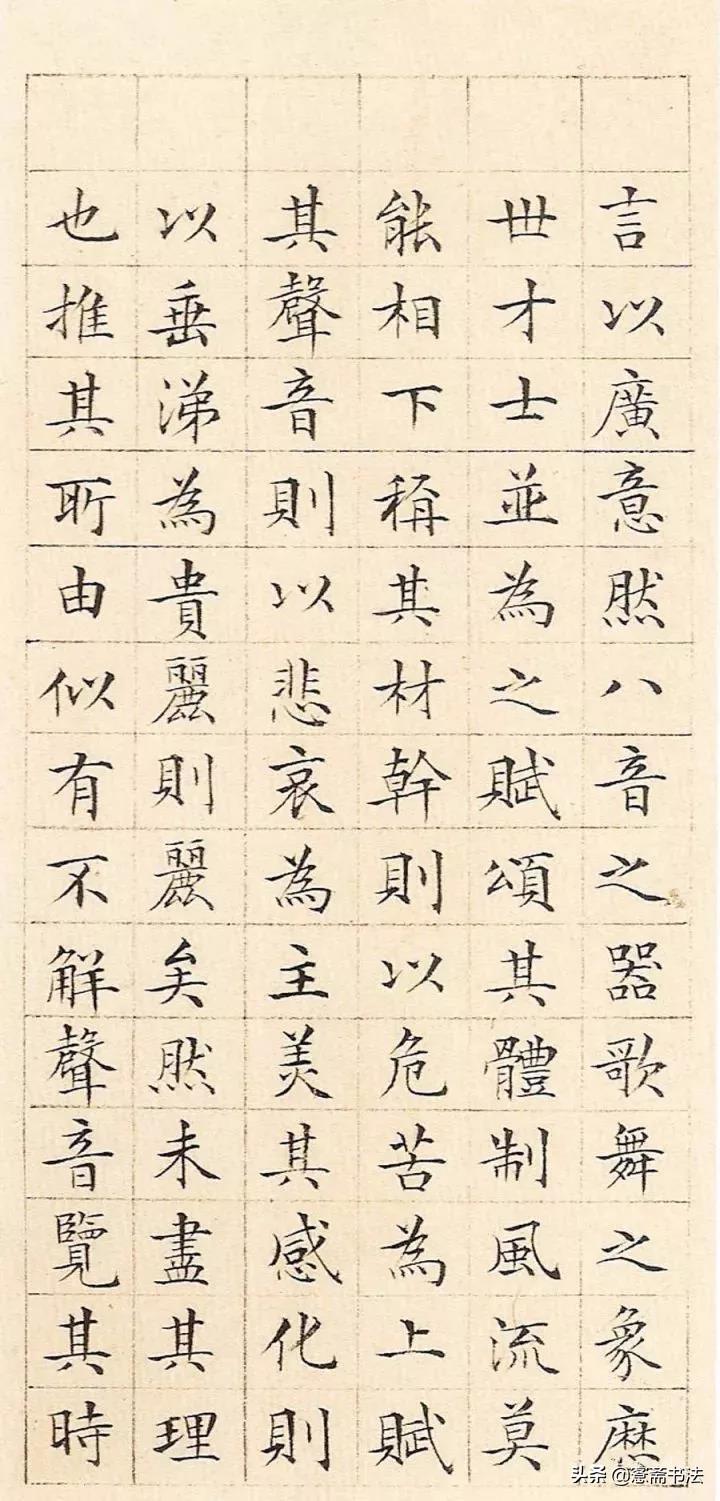 言以廣意然八音之器歌舞之象歷
世才士並為之賦頌其體制風流莫
能相下稱其材幹則以危苦為上賦
其聲音則以悲哀為主美其感化則
以垂涕為貴麗則麗矣然未盡其理
也推其所由似有不解聲音覽其時
头条@愙斋书法